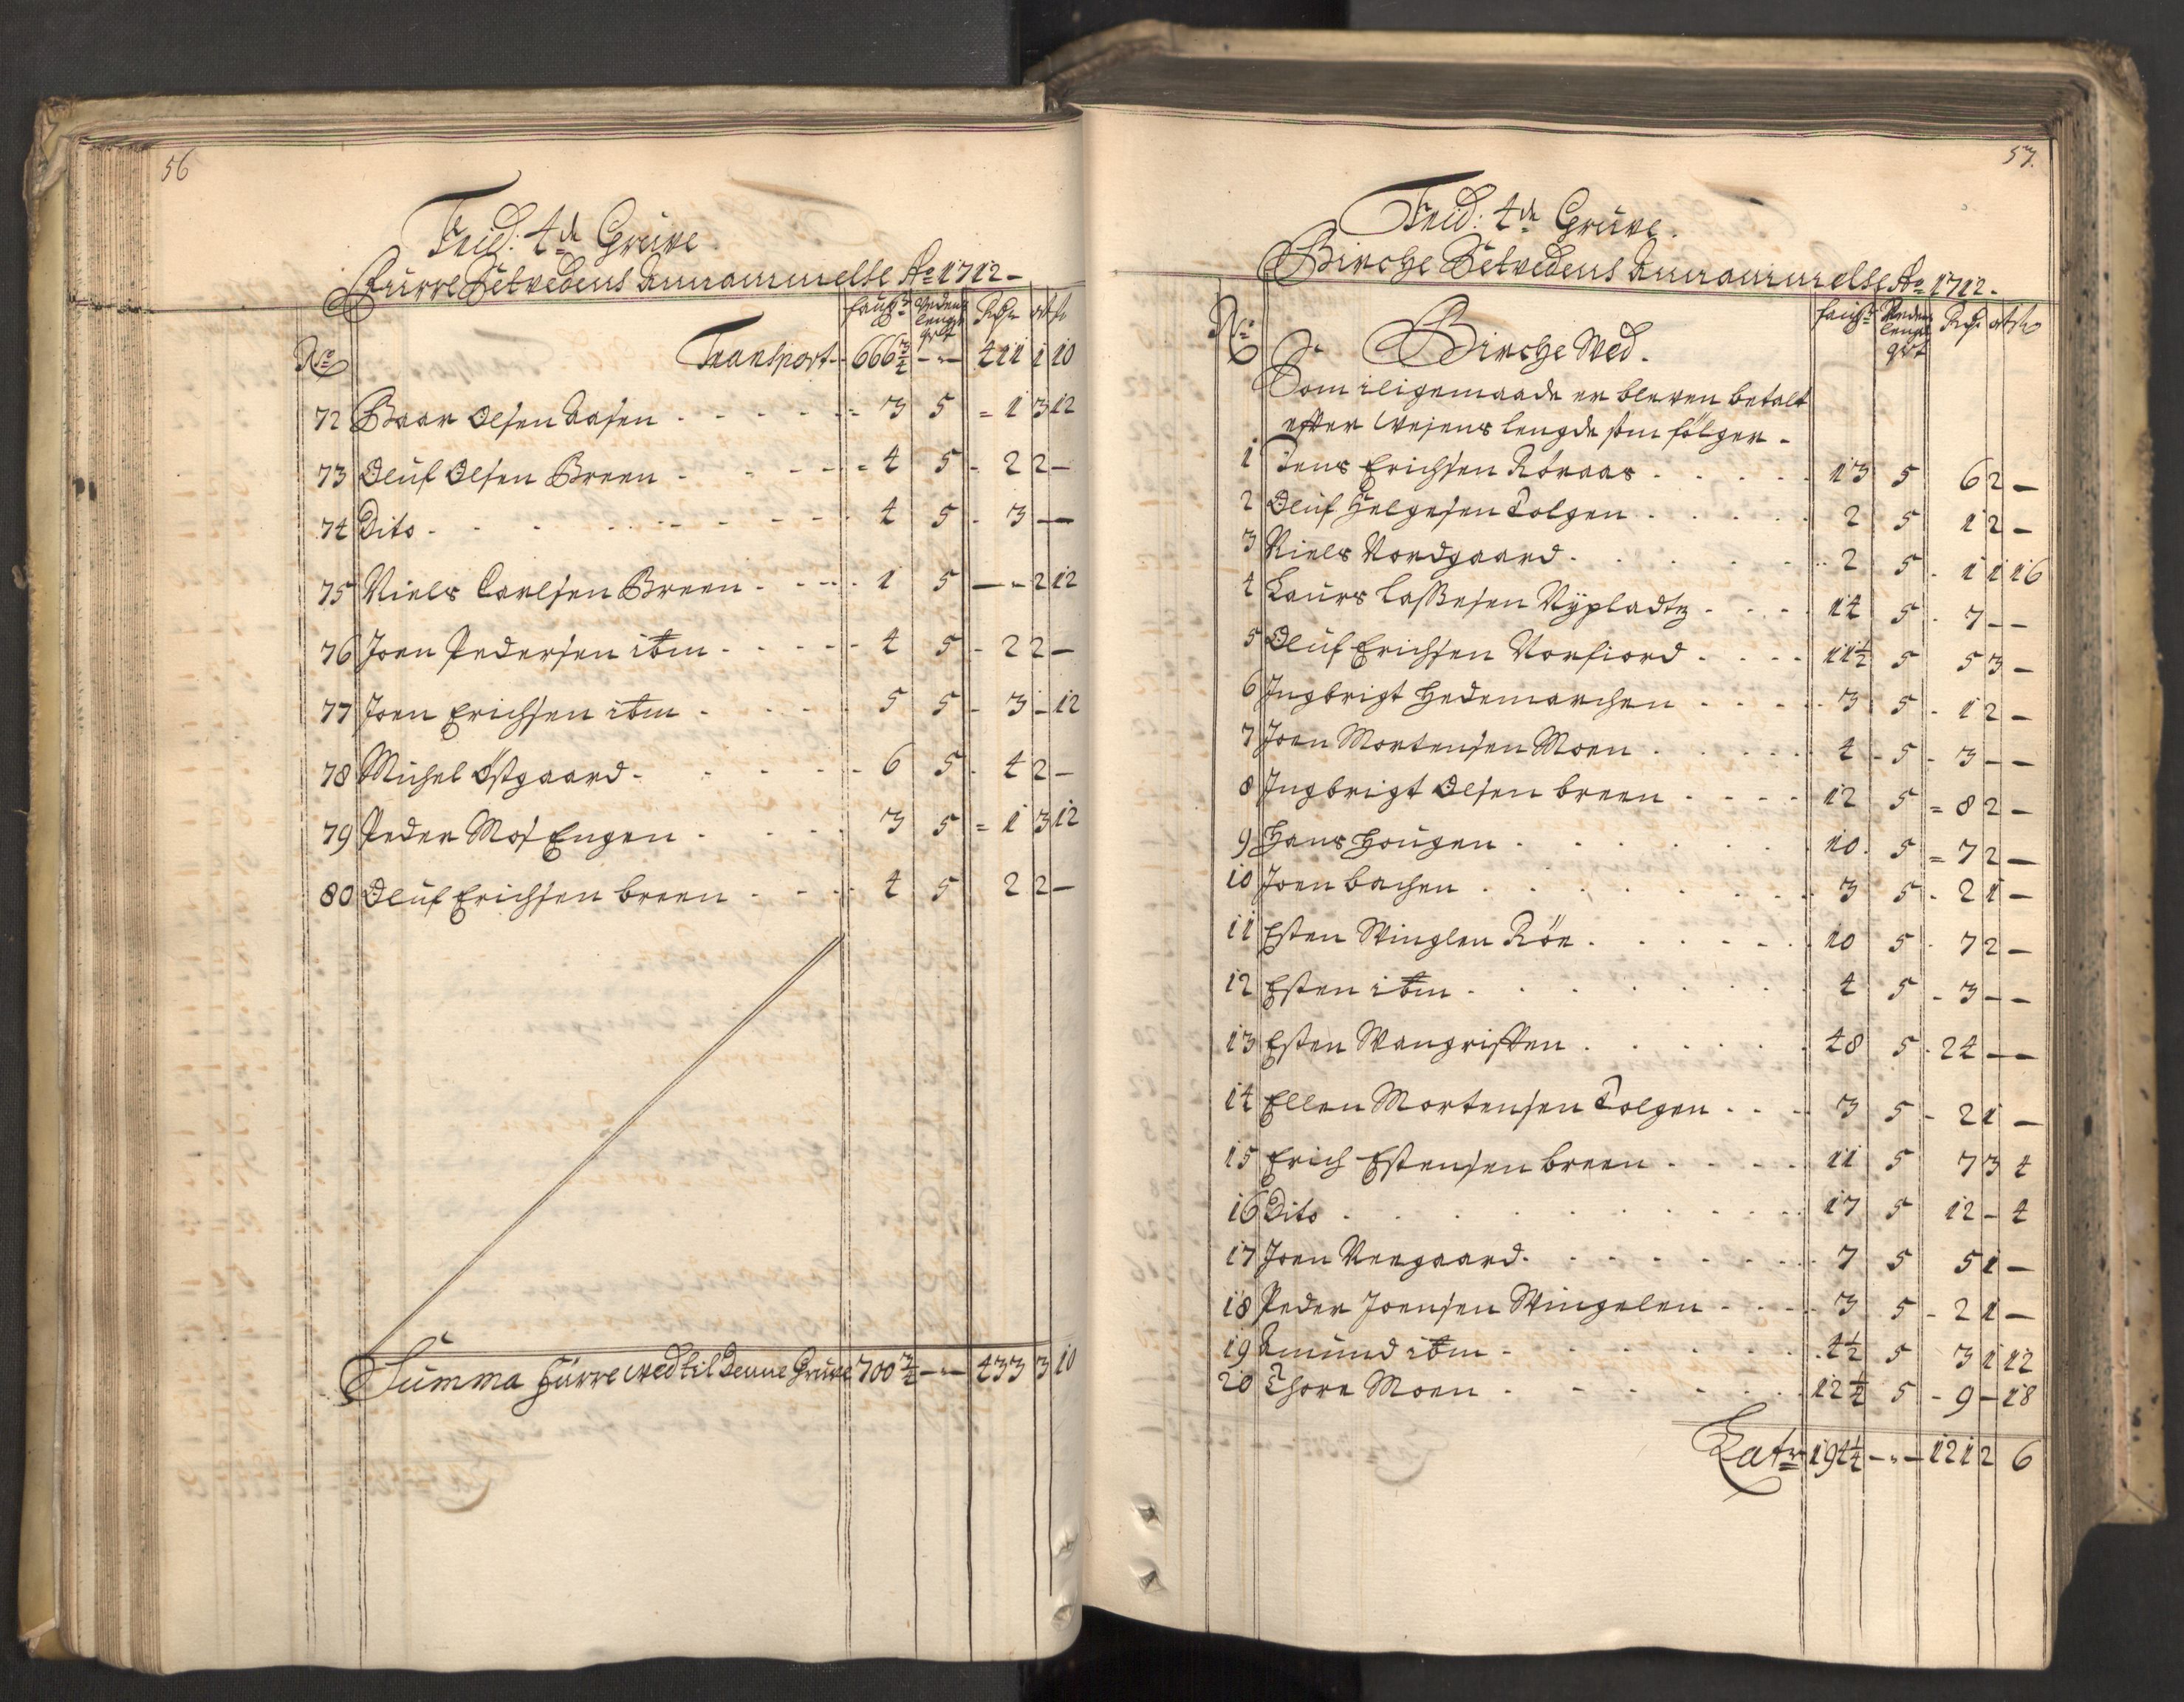 56
Frid: 4de Grüve
Fürre Setvedens Annammelse Ao 1712 -
No faufn: Vedens lengde qrt Rdr ort s
Transport - 666 3/4 - - 411 1 10
72 Baar Olsen Aasen - 3 5 = 1 3 12
73 Oluf Olsen Breen - 4 5 - 2 2 -
74 Dito - 4 5 - 3 - -
75 Niels Carlsen Breen - 1 5 - - 2 12
76 Joen Pedersen ibm - 4 5 - 2 2 -
77 Joen Erichsen ibm - 5 5 - 3 - 12
78 Michel Östgaard - 6 5 - 4 2 -
79 Peder Mos Engen - 3 5 = 1 3 12
80 Oluf Erichsen breen - 4 5 2 2 -
Summa Fürre wed til denne Grüve 700 3/4 - - 433 3 10
57.
Frid: 4de Grüve.
Birche Setvedens Annammelse Ao 1712 -
No faufn: Vedens lengde qrt Rdr ort s
Birche Wed.
Som iligemaade er bleven betalt
efter Weyens lengde som fölger -
1 Jens Erichsen Röraas - 13 5 6 2 -
2 Oluf Helgesen Tolgen - 2 5 1 2 -
3 Niels Nordgaard - 2 5 - 1 1 16
4 Laurs Lassesen Nÿpladtz - 14 5 - 7 - -
5 Oluf Erichsen Norfiord - 11 1/2 5 5 3 -
6 Ingbrigt Hedemarchen - 3 5 - 1 2 -
7 Joen Mortensen Moen - 4 - 5 - 3 - -
8 Ingbrigt Olsen breen - 12 5 = 8 2 -
9 Hans Hougen - 10 5 = 7 2 -
10 Joen bachen - 3 5 - 2 1 -
11 Esten Winglen Röe - 10 5 - 7 2 -
12 Esten ibm - 4 5 - 3 - -
13 Esten Wangriften - 48 5 - 24 - -
14 Ellen Mortensen Tolgen - 3 5 - 2 1 -
15 Erich Estensen breen - 11 5 7 3 4
16 Dito - 17 5 12 - 4
17 Joen Neegaard - 7 5 5 1 -
18 Peder Joensen Wingelen - 3 5 - 2 1 -
19 Amund ibm - 4 1/2 5 3 1 12
20 Thore Moen - 12 1/4 5 - 9 - 18
Latr 194 1/4 - - 121 2 6